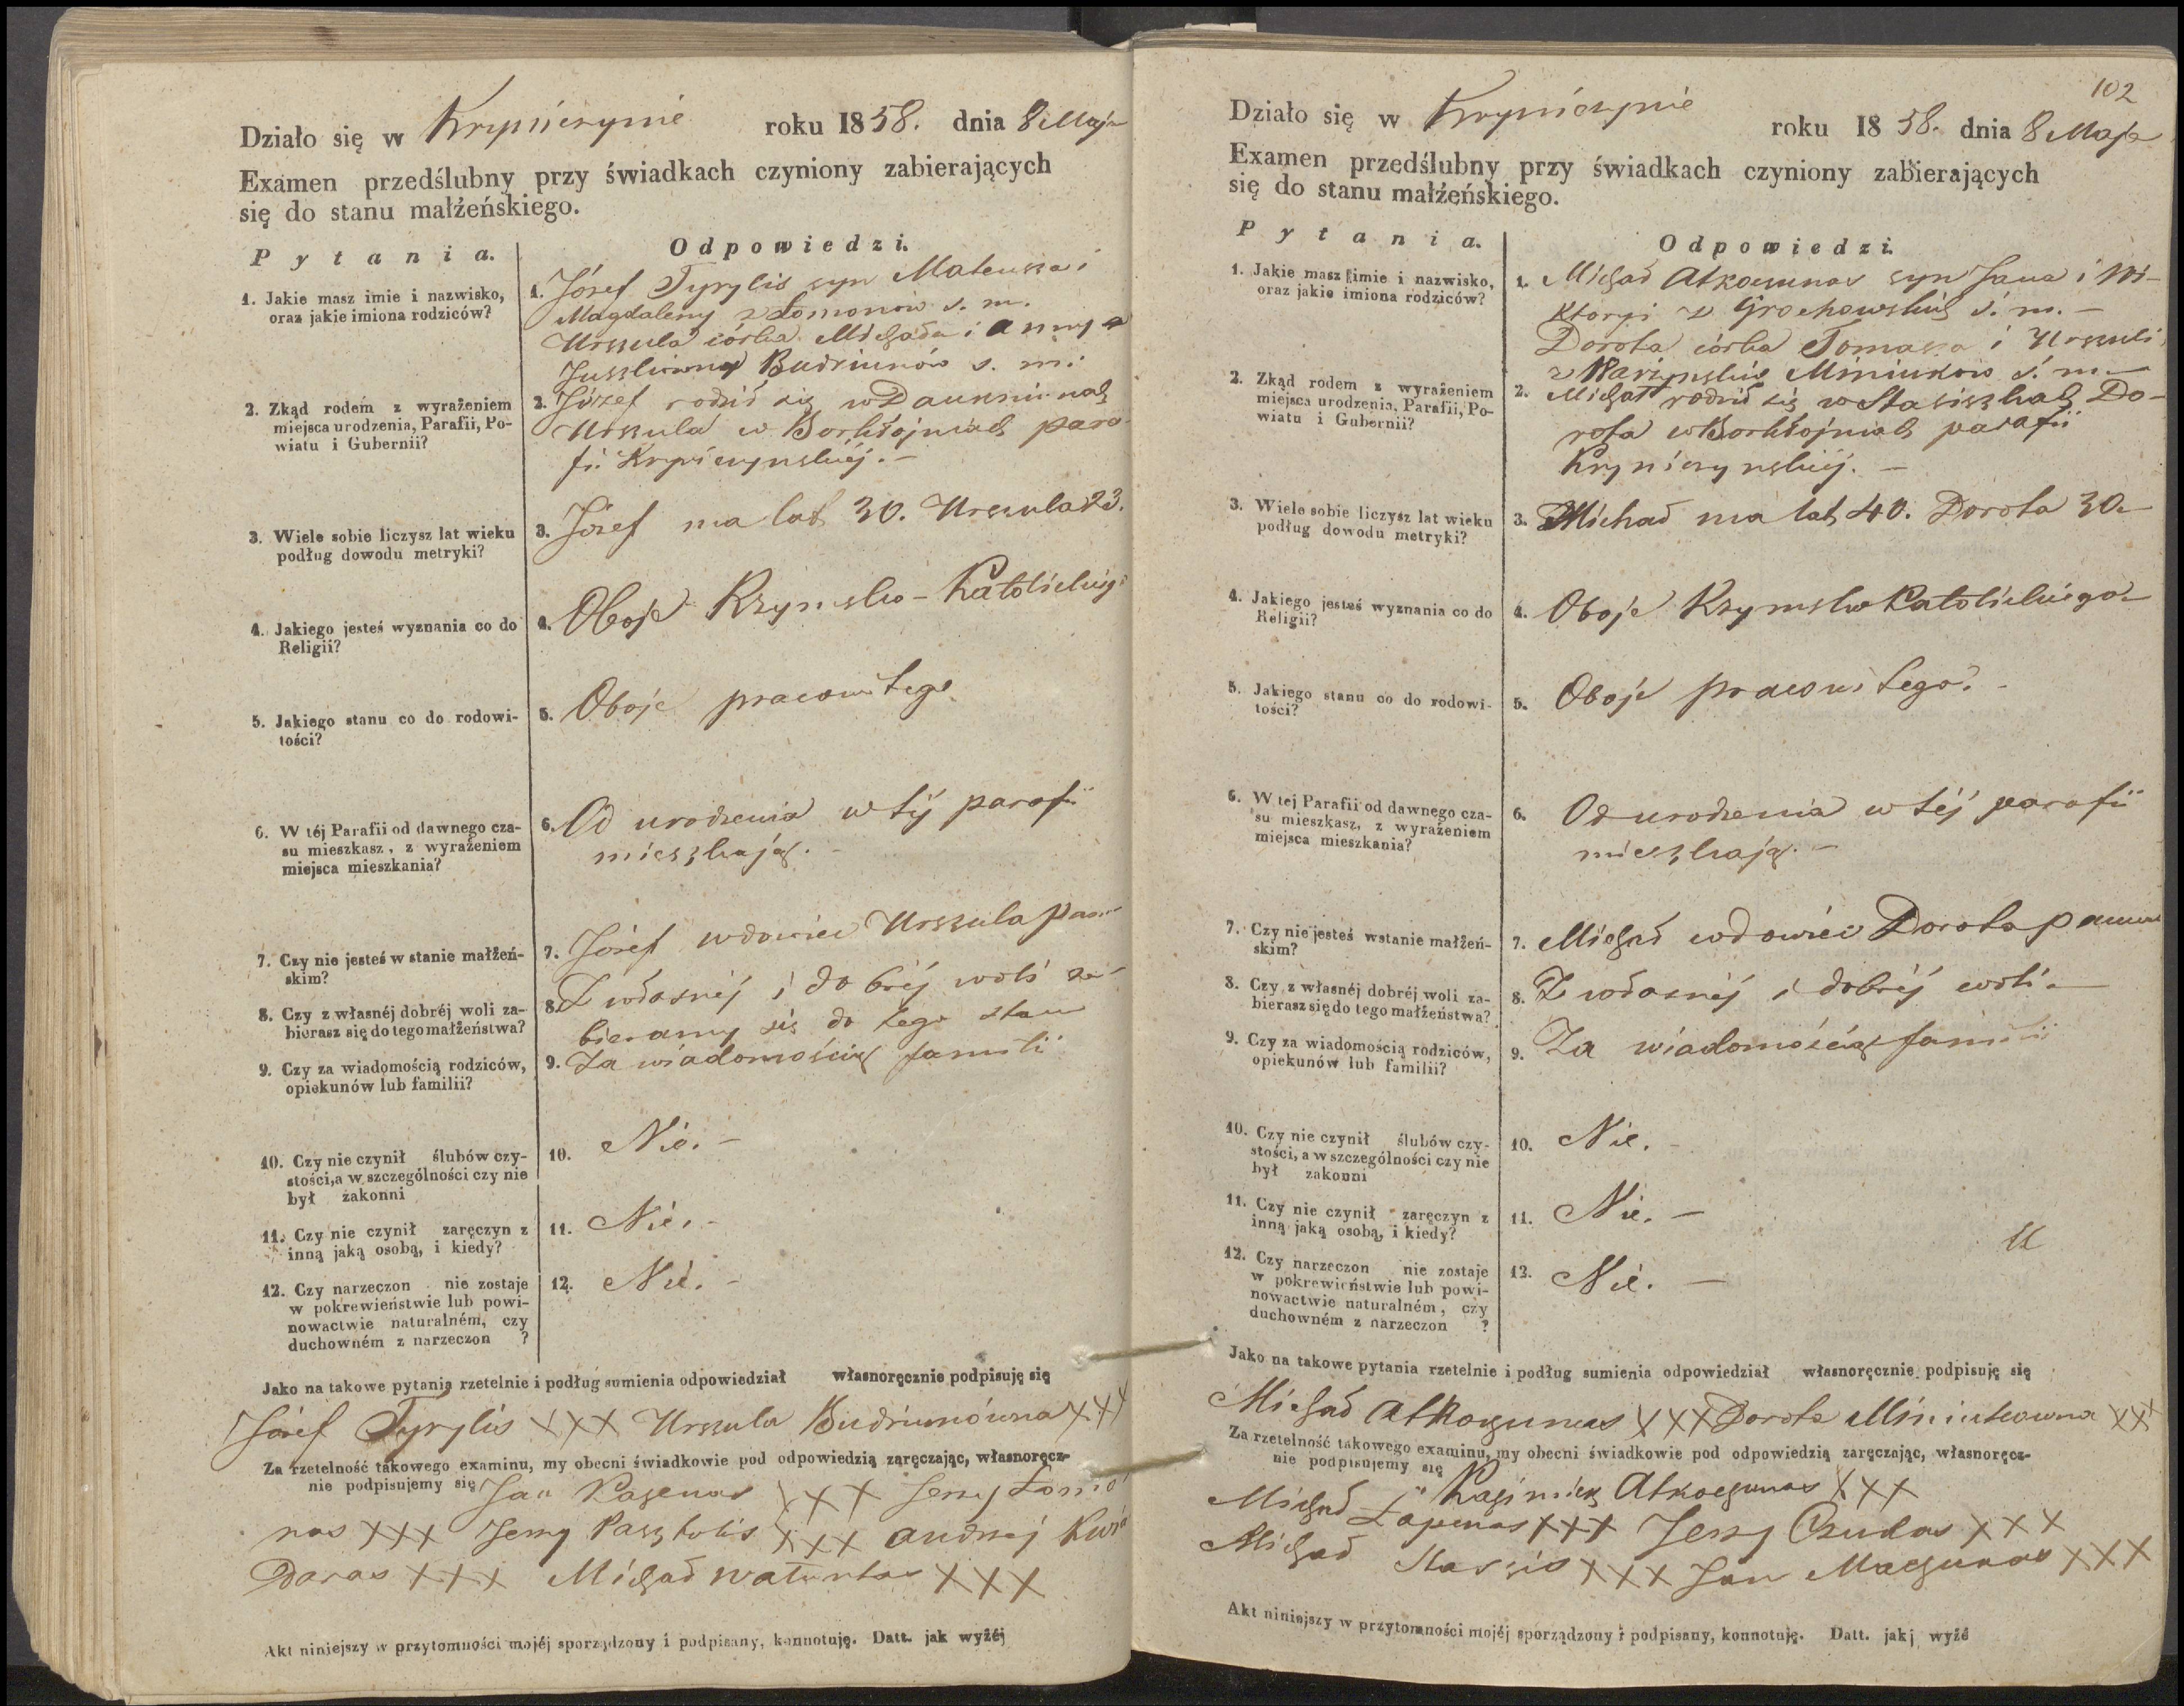 Działo się w Kryniczynie roku 1858. dnia 8 Maja
Examen przedślubny przy świadkach czyniony zabierających
się do stanu małżeńskiego.
Pytania.
Odpowiedzi.
1. Jakie masz imie i nazwisko,
oraz jakie imiona rodziców?
1. Józef Tyrylis syn Mateusza i
Magdaleny z Łomonów ś. m.
Urszula córka Michała i Anny z
Budriunów ś. m.
2. Zkąd rodem z wyrażeniem
miejsca urodzenia, Parafii, Po-
wiatu i Gubernii?
2. Józef rodził się w
Urszula w Borkłojniach para-
fii Krynicznyńskiéj. –
3. Wiele sobie liczysz lat wieku
podług dowodu metryki?
3. Józef ma lat 30. Urszula 23.
4. Jakiego jesteś wyznania co do
Religii?
4. Oboje Rzymsko-Katolickiego
5. Jakiego stanu co do rodowi-
tości?
5. Oboje pracowitego
6. W téj Parafii od dawnego cza-
su mieszkasz, z wyrażeniem
miejsca mieszkania?
6. Od urodzenia w téj parafii
mieszkają. –
7. Czy nie jesteś w stanie małżeń-
skim?
7. Józef wdowiec Urszula
8. Czy z własnéj dobréj woli za-
bierasz się do tego małżeństwa?
8. Z własnéj i dobréj woli za-
bieramy się do tego stanu
9. Czy za wiadomością rodziców,
opiekunów lub familii?
9. Za wiadomością familii
10. Czy nie czynił ślubów czy-
stości, a w szczególności czy nie
był zakonni
10. Nie. –
11. Czy nie czynił zaręczyn z
inną jaką osobą, i kiedy?
11. Nie. –
12. Czy narzeczon nie zostaje
w pokrewieństwie lub powi-
nowactwie naturalném, czy
duchowném z narzeczon ?
12. Nie. –
Jako na takowe pytania rzetelnie i podług sumienia odpowiedział własnoręcznie podpisuję się
Józef Tyrylis XXX Urszula Budriunówna XXX
Za rzetelność takowego examinu, my obecni świadkowie pod odpowiedzią zaręczając, własnoręcz-
nie podpisujemy się Jan XXX Jerzy Łomo-
nos XXX Jerzy XXX Andrzej
XXX Michał XXX
Akt niniejszy w przytomności mojéj sporządzony i podpisany, konnotuję. Datt. jak wyżéj
102
Działo się w Kryniczynie roku 1858. dnia 8 Maja
Examen przedślubny przy świadkach czyniony zabierających
się do stanu małżeńskiego.
Pytania.
Odpowiedzi.
1. Jakie masz imie i nazwisko,
oraz jakie imiona rodziców?
1. Michał Atkoczunas syn Jana i Wi-
ktoryi z Grochowskich ś. m. –
Dorota córka Tomasza i Urszuli
Miniukow ś. m.
2. Zkąd rodem z wyrażeniem
miejsca urodzenia, Parafii, Po-
wiatu i Gubernii?
2. Michał rodził się w Stasiszkach Do-
rota w Borkłojniach parafii
Krynicznyńskiéj. –
3. Wiele sobie liczysz lat wieku
podług dowodu metryki?
3. Michał ma lat 40. Dorota 30.
4. Jakiego jesteś wyznania co do
Religii?
4. Oboje Rzymsko Katolickiego
5. Jakiego stanu co do rodowi-
tości?
5. Oboje pracowitego. –
6. W tej Parafii od dawnego cza-
su mieszkasz, z wyrażeniem
miejsca mieszkania?
6. Od urodzenia w téj parafii
mieszkają. –
7. Czy nie jesteś w stanie małżeń-
skim?
7. Michał wdowiec Dorota panna
8. Czy z własnéj dobréj woli za-
bierasz się do tego małżeństwa?
8. Z własnéj i dobréj woli. –
9. Czy za wiadomością rodziców,
opiekunów lub familii?
9. Za wiadomością familii
10. Czy nie czynił ślubów czy-
stości, a w szczególności czy nie
był zakonni
10. Nie. –
11. Czy nie czynił zaręczyn z
inną jaką osobą, i kiedy?
11. Nie. –
12. Czy narzeczon nie zostaje
w pokrewieństwie lub powi-
nowactwie naturalném, czy
duchowném z narzeczon ?
12. Nie. –
Jako na takowe pytania rzetelnie i podług sumienia odpowiedział własnoręcznie podpisuję się
Michał Atkoczunas XXX Dorota XXX
Za rzetelność takowego examinu, my obecni świadkowie pod odpowiedzią zaręczając, własnoręcz-
nie podpisujemy się Kazimierz Atkoczunas XXX
Michał Łapenas XXX Jerzy Czudas XXX
Michał XXX Jan XXX
Akt niniejszy w przytomności mojéj sporządzony i podpisany, konnotuję. Datt. jakj wyżé